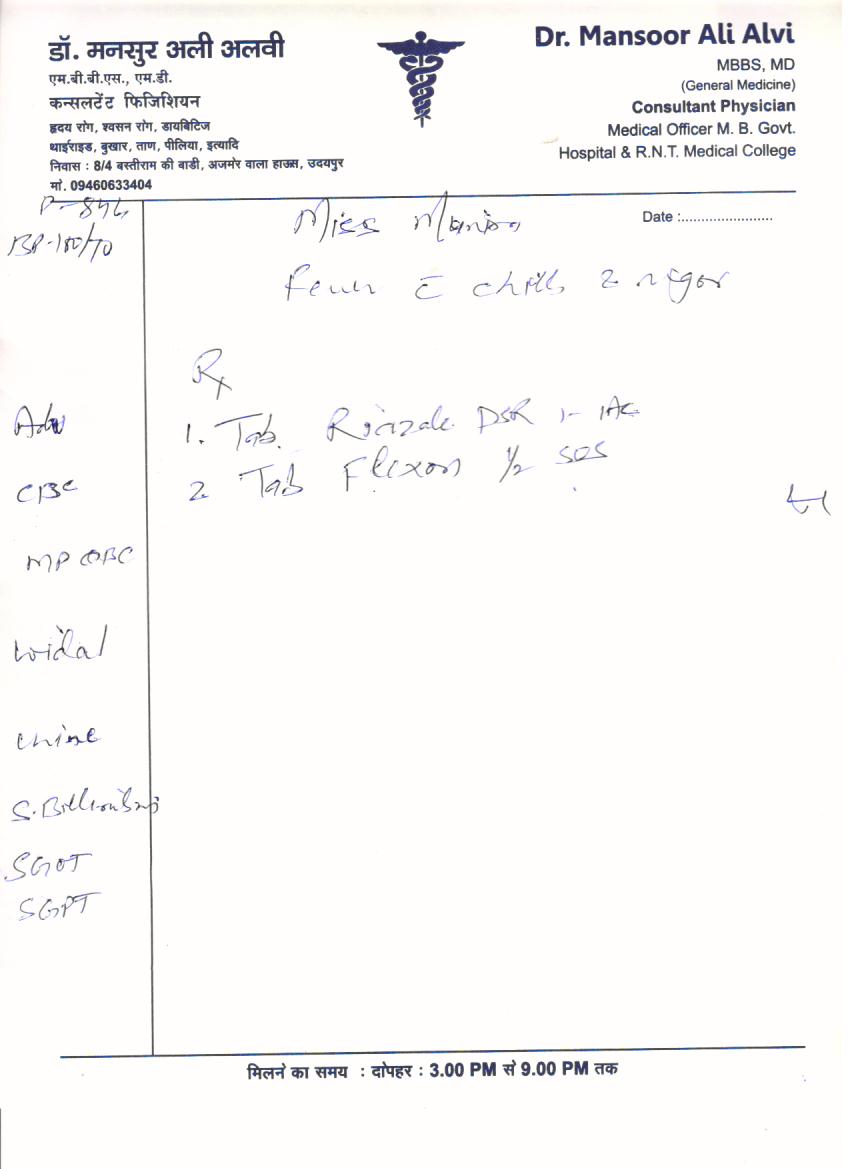 डॉ. मनसुर अली अलवी
एम.बी.बी.एस., एम.डी.
कन्सलटेंट फिजिशियन
हृदय रोग, श्वसन रोग, डायबिटिज
थाईराइड, बुखार, ताण, पीलिया, इत्यादि
निवास : 8/4 बस्तीराम की बाडी, अजमेर वाला हाउस, उदयपुर
मो. 09460633404
Dr. Mansoor Ali Alvi
MBBS, MD
(General Medicine)
Consultant Physician
Medical Officer M. B. Govt.
Hospital & R.N.T. Medical College
Date :.......................
BP-100/70
Miss
Fever c chills & rigor
Rx
Adv
1. Tab. DSR 1-
2 Tab Flexon 1/2 SOS
CBC
MP QBC
widal
urine
S. Billirubin
SGOT
SGPT
मिलने का समय : दोपहर : 3.00 PM से 9.00 PM तक